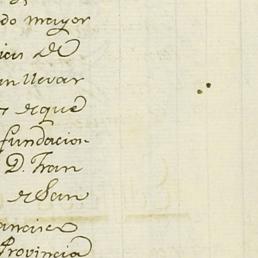 do mayor
cias de
an llevar
s de que
fundacion
D. Fran
de San
ancisco
Provincia